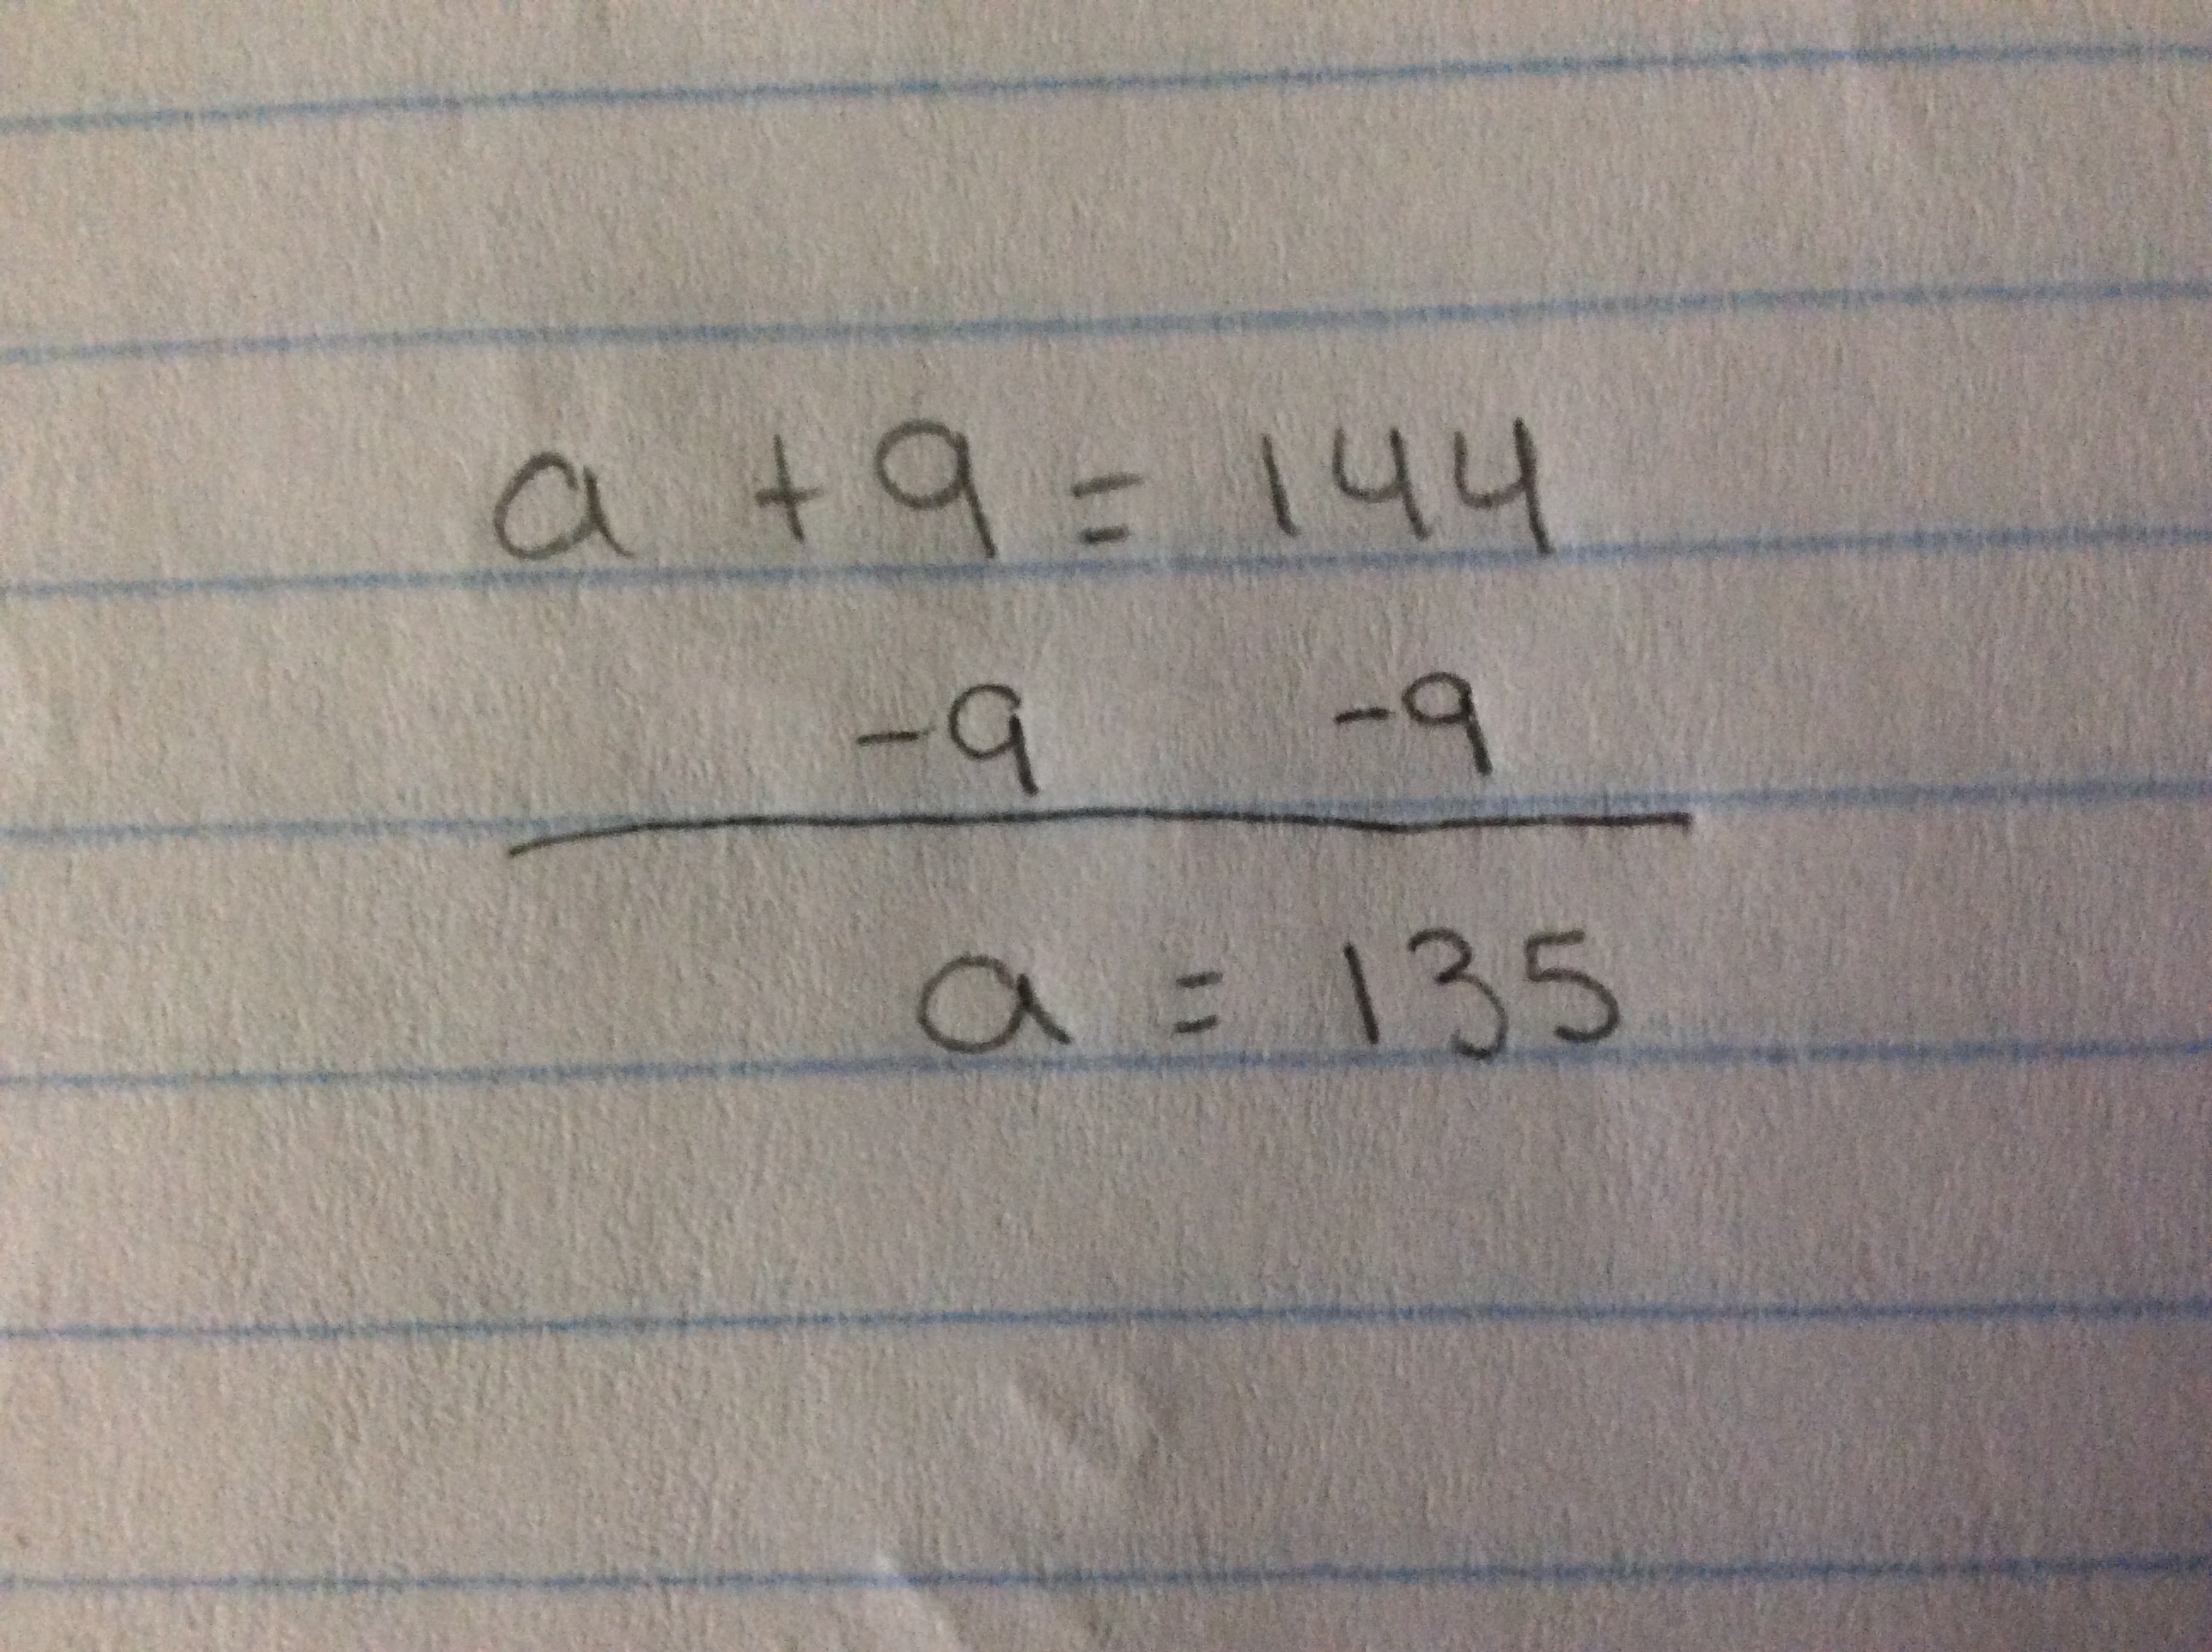 a + 9 = 144
-9 -9
a = 135